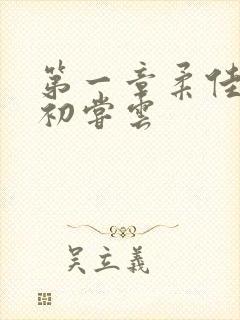 第一章柔佳
初尝雲
吴立義